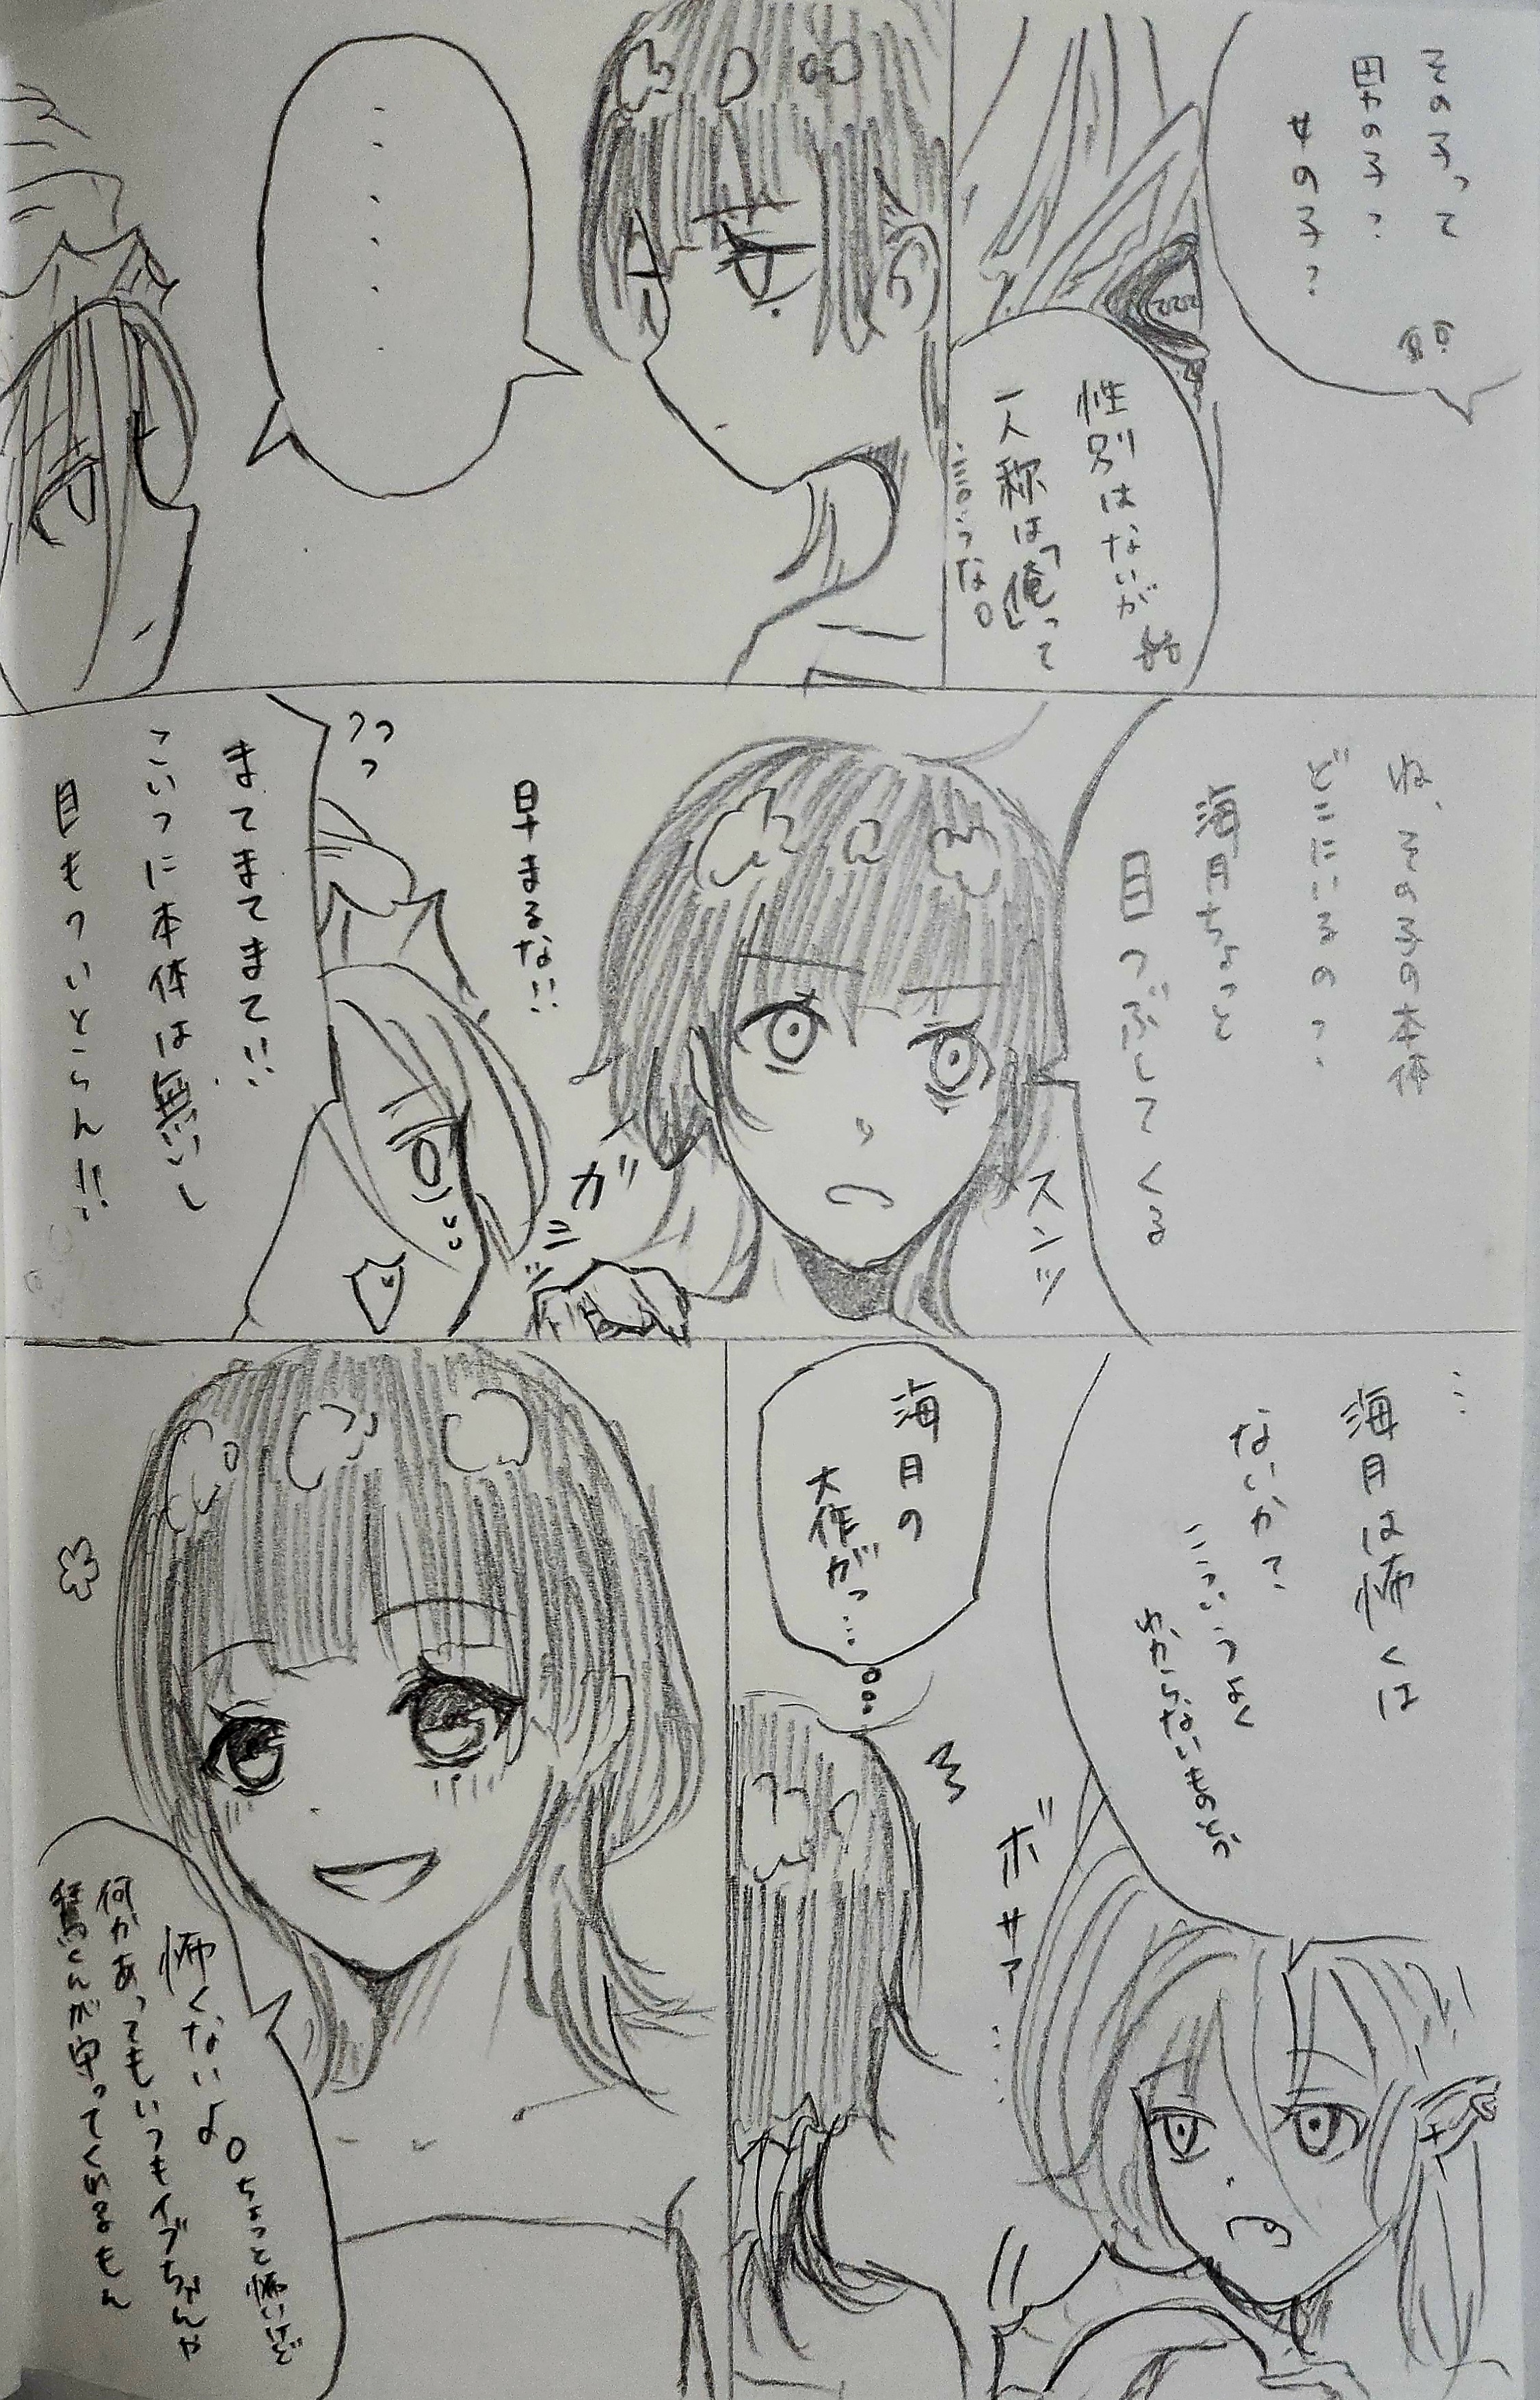 その子って
男の子?
女の子?
性別はないが
一人称は「俺」って
言うな。
・・・・・・
ね、その子の本体
どこにいるの?
海月ちょっと
目つぶしてくる
スンッ
ガシッ
早まるな!!
まてまてまて!!
こいつに本体は無いし
目もついとらん!!
…海月は怖くは
ないか?
こういうよく
わからないものとか
ボサァ…
海月の
大作がっ…
怖くないよ。ちょっと怖いけど
何かあってもいつもイブちゃんや
くんが守ってくれるもん